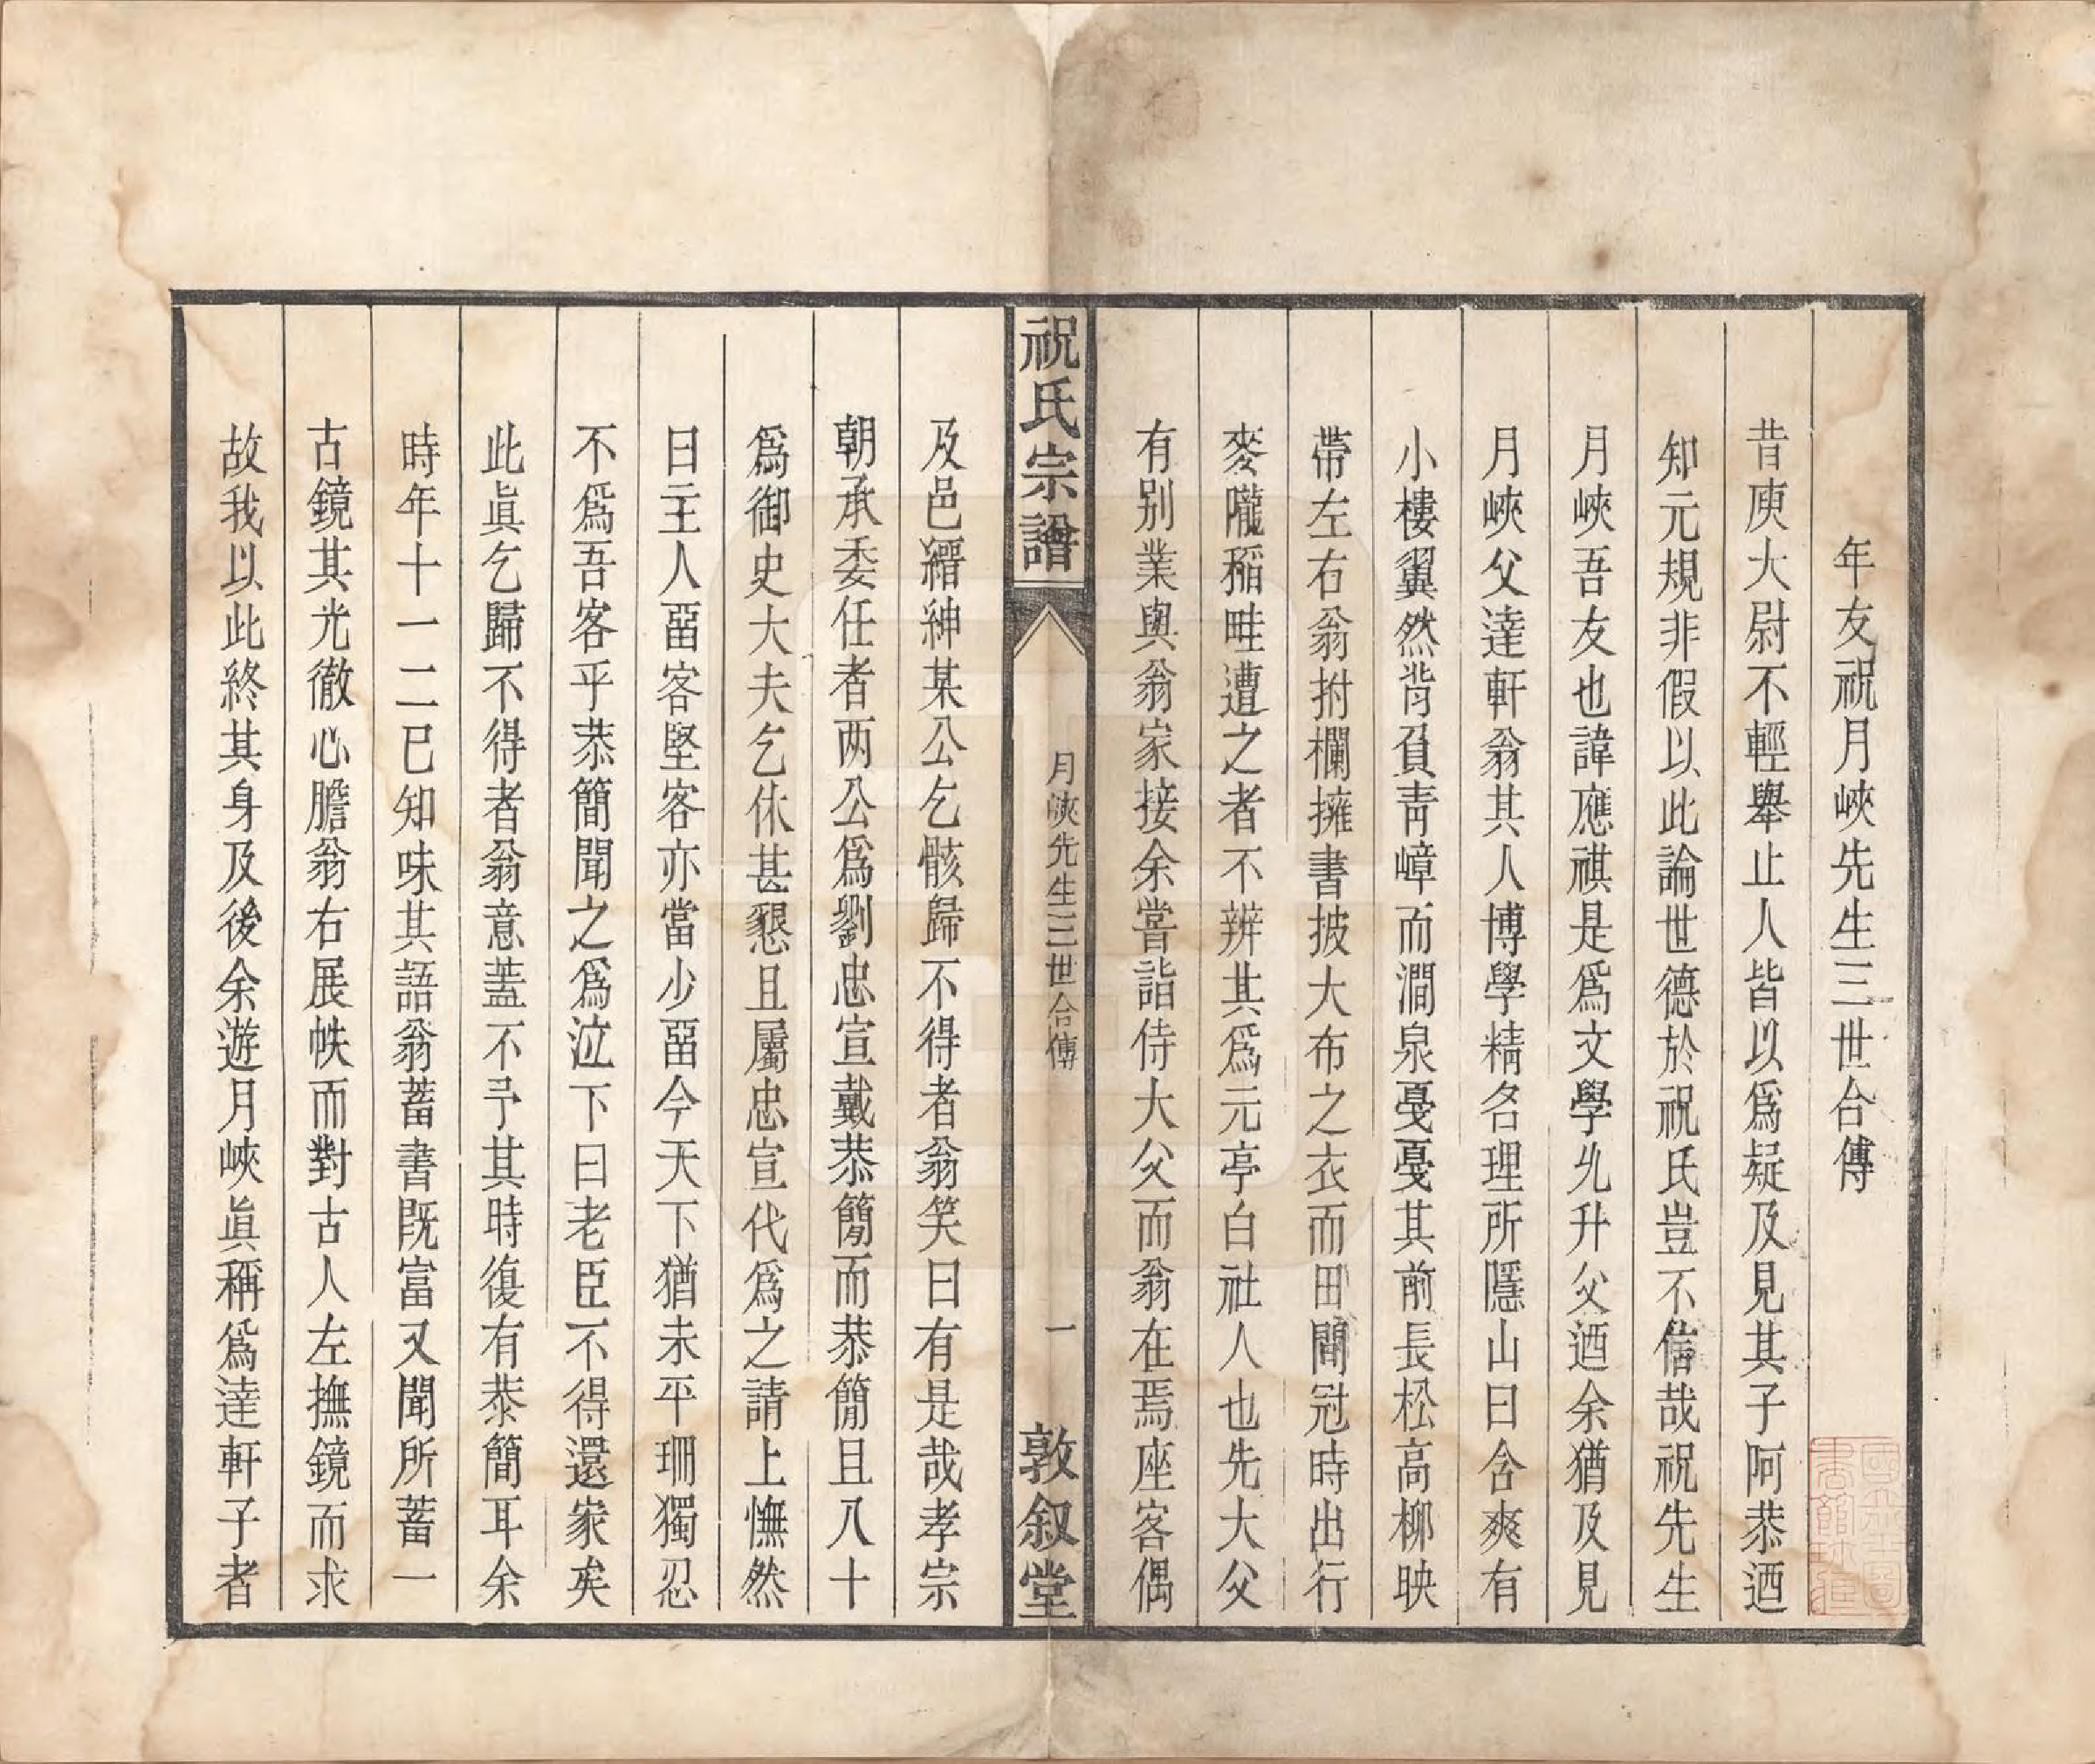 年友祝月峽先生三世合傳
昔庾大尉不輕舉止人皆以爲疑及見其子阿恭迺
知元規非假以此論世德於祝氏豈不信哉祝先生
月峽吾友也諱應祺是爲文學允升父迺余猶及見
月峽父達軒翁其人博學精名理所隱山曰含爽有
小樓翼然背負靑嶂而澗泉戞戞其前長松高柳映
帶左右翁拊欄擁書披大布之衣而田間冠時出行
麥隴稻畦遭之者不辨其爲元亭白社人也先大父
有別業與翁家接余嘗詣侍大父而翁在焉座客偶
祝氏宗譜
月峽先生三世合傳
一
敦叙堂
及邑縉紳某公乞骸歸不得者翁笑曰有是哉孝宗
朝承委任者两公爲劉忠宣戴恭簡而恭簡且八十
爲御史大夫乞休甚懇且屬忠宣代爲之請上憮然
曰主人畱客堅客亦當少畱今天下猶未平珊獨忍
不爲吾客乎恭簡聞之爲泣下曰老臣不得還家矣
此眞乞歸不得者翁意蓋不予其時復有恭簡耳余
時年十一二已知味其語翁蓄書旣富又聞所蓄一
古鏡其光徹心膽翁右展帙而對古人左撫鏡而求
故我以此終其身及後余遊月峽眞稱爲達軒子者